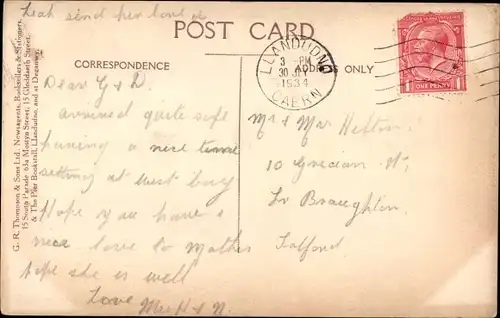 Leah send her love
POST CARD
CORRESPONDENCE
ADDRESS ONLY
LLANDUDNO
3 - PM
30 JLY
1934
CAERN
ONE PENNY
Dear G & D.
arrived quite safe
having a nice time
sitting at west bay
Hope you have a
nice love to Mother
hope she is well
Love Mr H & N.
Mr & Mrs
10 Grecian St,
Lr Broughton
Salford
G. R. Thompson & Sons Ltd., Newsagents, Booksellers & Stationers,
15 South Parade 63a Mostyn Street, 15 Gloddaeth Street,
& The Pier Bookstall, Llandudno, and at Deganwy.